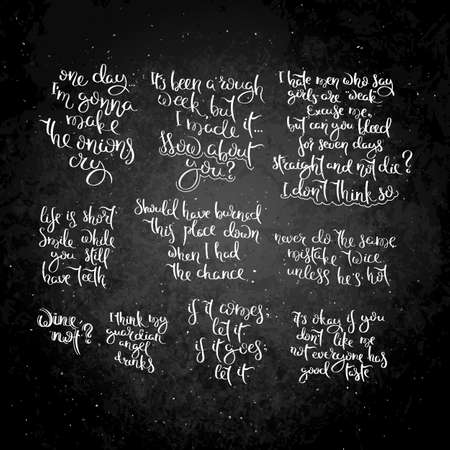 one day...
I'm gonna
make
the onions
cry
It's been a rough
week, but
I made it...
How about
you?
I hate men who say
girls are "weak"
Excuse me,
but can you bleed
for seven days
straight and not die?
I don't think so
life is short
smile while
you still
have teeth
Should have burned
this place down
when I had
the chance...
never do the same
mistake twice
unless he's hot
Wine
not?
I think my
guardian
angel
drinks
if it comes;
let it
if it goes;
let it
it's okay if you
don't like me
not everyone has
good taste